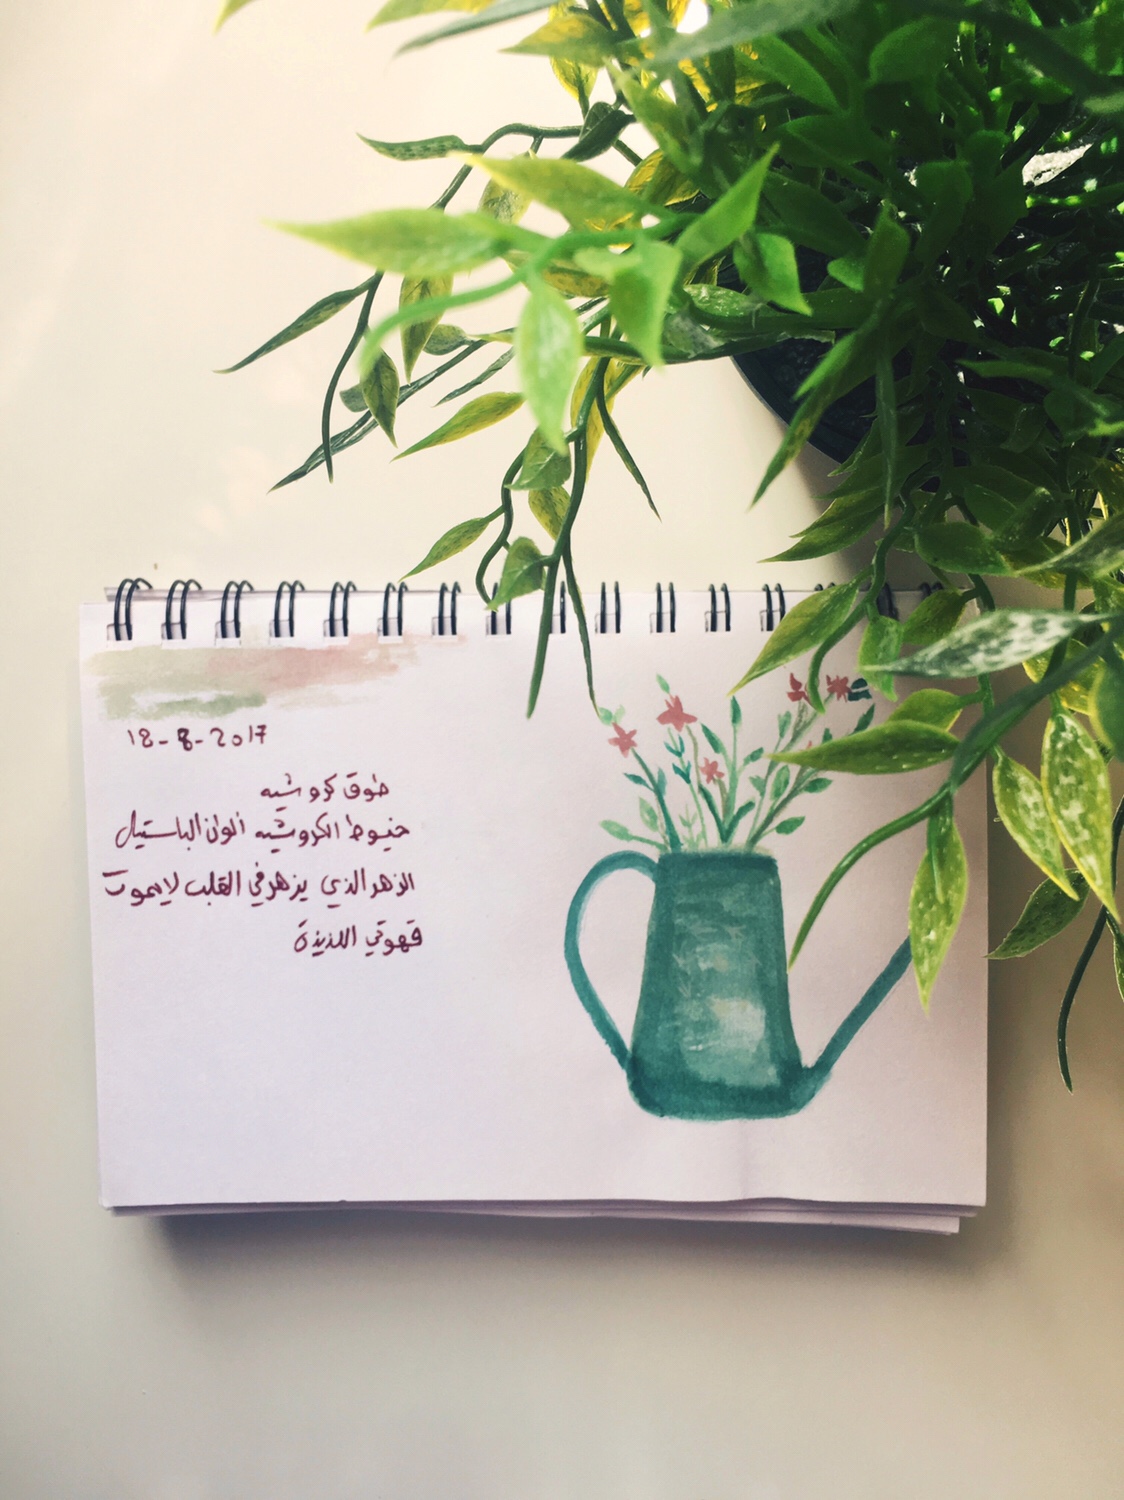 18-8-2017
طوق كروشيه
خيوط الكروشيه ألوان الباستيل
الزهر الذي يزهر في القلب لا يموت
قهوتي اللذيذة